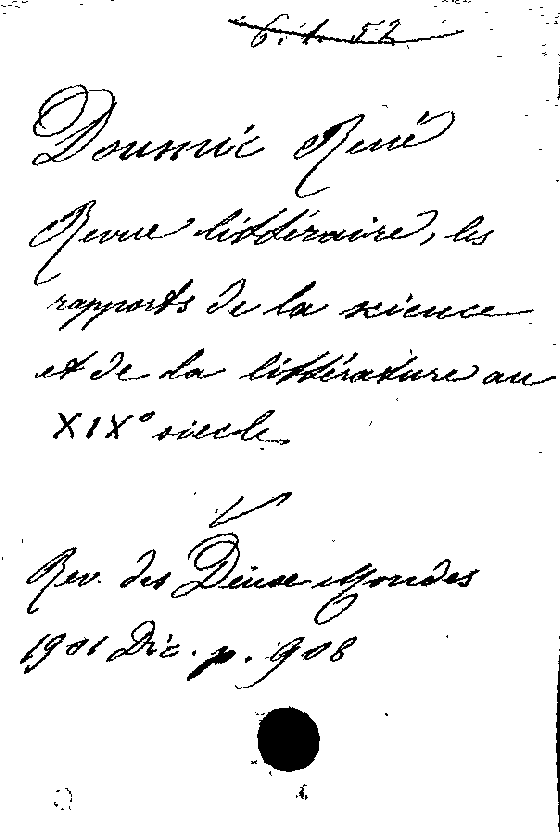 6.1.52
Doumic René
Revue littéraire, les
rapports de la science
et de la littérature au
XIXº siècle.
Rev. des Deux Mondes
1901 Dic. p. 908